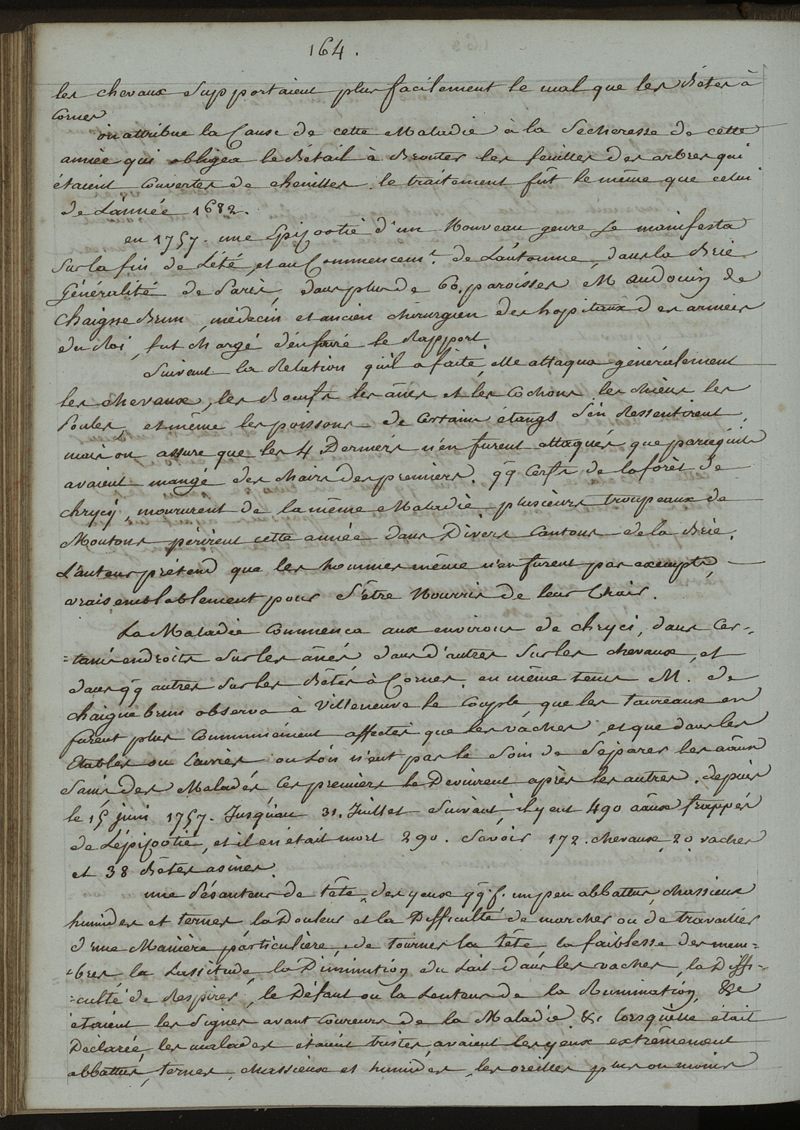 164.
les chevaux Supportaient plus facilement le mal que les Bêtes à
Cornes
on attribue la Cause de cette Maladie à la Secheresse de cette
année qui obligea le Bétail à Brouter les feuilles des arbres qui
étaient Couvertes de chenilles. le traitement fût le même que celui
de L'année 1682.
en 1757. une Epizootie d'un Nouveau genre se manifesta
Sur la fin de L'été, et au Commencem.t de L'automne, dans la Brie
Généralité de Paris, dans plus de 60. paroisses M audouin de
Chaigne Brun, médecin et ancien chirurgien des hopitaux des armées
du Roi, fut chargé d'en faire le Rapport.
Suivant la Relation qu'il a faite, elle attaqua généralement
les chevaux, les Boeufs, les ânes et les Cochons, les chiens les
Poules, et même les poissons de Certains étangs S'en Ressentirent,
mais on assure que les 4 Derniers n'en furent attaqués que parcequ'ils
avaient mangé des chairs des premiers. qq Cerfs de la forêt de
Chrycy, moururent de la même Maladie plusieurs troupeaux de
Moutons périrent cette année dans Divers Cantons de la Brie.
L'auteur prétend que les hommes même n'en furent pas exempts,
vraisemblablement pour S'être Nourris de leur Chair.
La Maladie Commença aux environs de Chryci, dans Cer-
=tains endroits Sur les ânes, dans d'autres Sur les chevaux, et
dans qq autres Sur les Bêtes à Cornes. en même tems M. de
Chaignebrun observa à Villeneuve le Comte que les Taureaux en
furent plus Communément affectés que les vaches, et que dans les
Etables ou Ecuries où L'on n'eut pas le Soin de Séparer les aaux
Sains des Malades Ces premiers le Devinrent après les autres. depuis
le 15 juin 1757. Jusqu'au 31. Juillet Suivant, il y eut 490 aaux frappés
de L'épizootie, et il en était mort 290. Savoir 172. chevaux, 20 vaches
et 38 Bêtes asines.
une Pésanteur de tête, des yeux qq.f. un peu abbattus, chassieux
humides et ternes, la Douleur et la Difficulté de marcher ou de travailler
d'une Manière particulière, de tourner la tête la faiblesse des mem=
=bres, la Lassitude, la Diminution du Lait dans les vaches, la Diffi=
=culté de Respirer, le Défaut ou la Lenteur de la Rumination, &c
étaient les Signes avant Coureurs de la Maladie &c lorsqu'elle était
Declarée, les malades étaient tristes, avaient les yeux extrêmement
abbattus, ternes, chassieux et humides, les oreilles plus ou moins